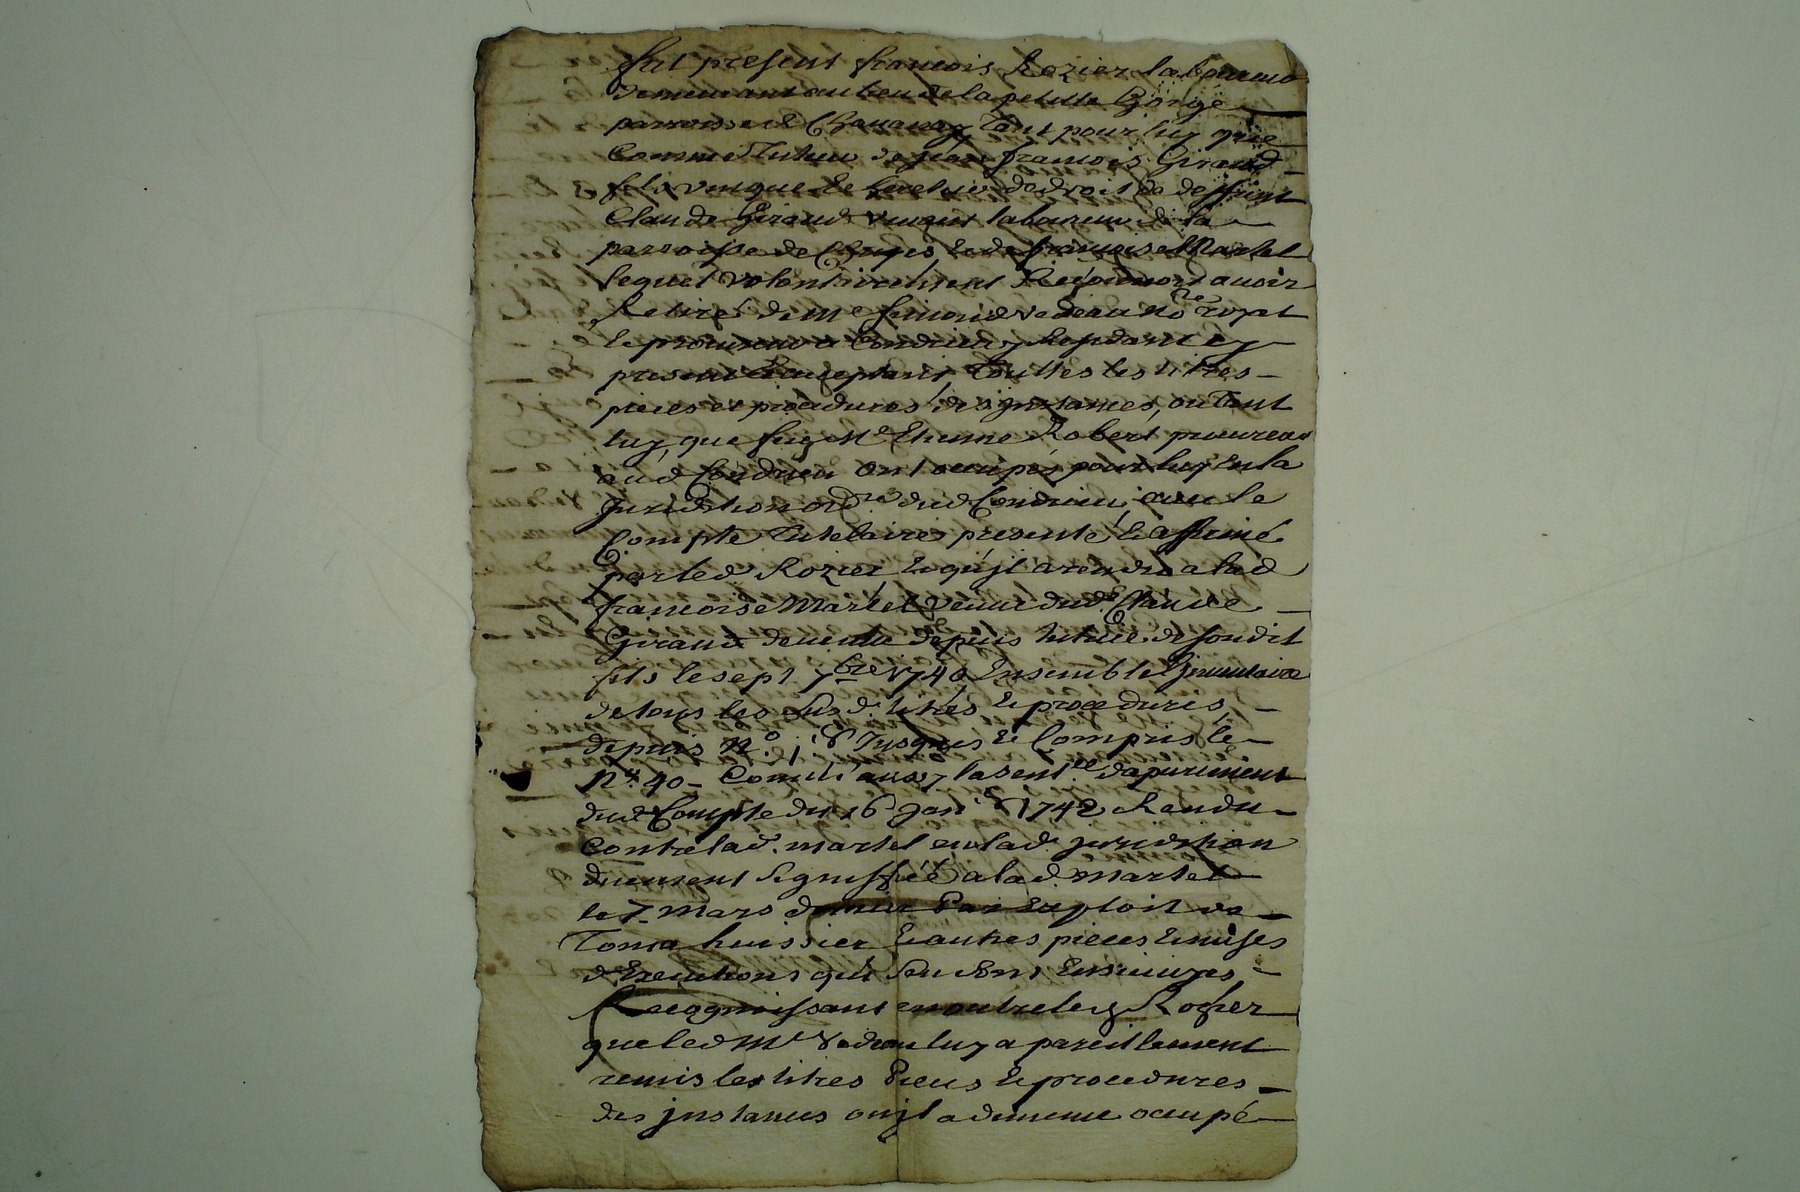 fut present françois Rozier laboureur
demeurant au lieu de la petitte Gorge
parroisse de Chavanay Tant pour luy que
Comme Tuteur de jean françois Giraud
fils unique et heretier de droit de deffunt
Claude Giraud vivant laboureur de la
parroisse de Chuyes et de françoise Martel
lequel volontairement Reconnoit avoir
Retiré de Me Simond vedeau Nore royal
et procureur a Condrieu y residant cy
present et acceptant Touttes les titres
pieces et procedures des jnstances, ou Tant
luy, que feu Me Etienne Robert procureur
aud Condrieu ont occupés pour luy en la
jurisdition ordre dud Condrieu, avec le
Compte Tutelaires presenté et affirmé
par led Rozier et qu'jl a rendu a lad
françoise Martel veuve dud Claude
Giraud devenue depuis tutrice de son dit
fils le sept 7bre 1740 Ensemble l'jnventaire
de tous les susd. titres et procedures
depuis No. 1er Jusques et Compris le
No. 40 Comme aussy la sentce d'apurement
dud Compte du 16 janer 1742 Rendu
Contre lad. martel en lad jurisdition
duement signiffiée a lad martel
le 7 mars dernier Par Exploit de
huissier et autres pieces et mises
d'Executions qui s'en sont Ensuivyes
Recognoissant en outre led Rozier
que led Me Vedeau luy a pareillement
remis les titres Pieces et procedures
des jnstances ou jl a de meme occupé